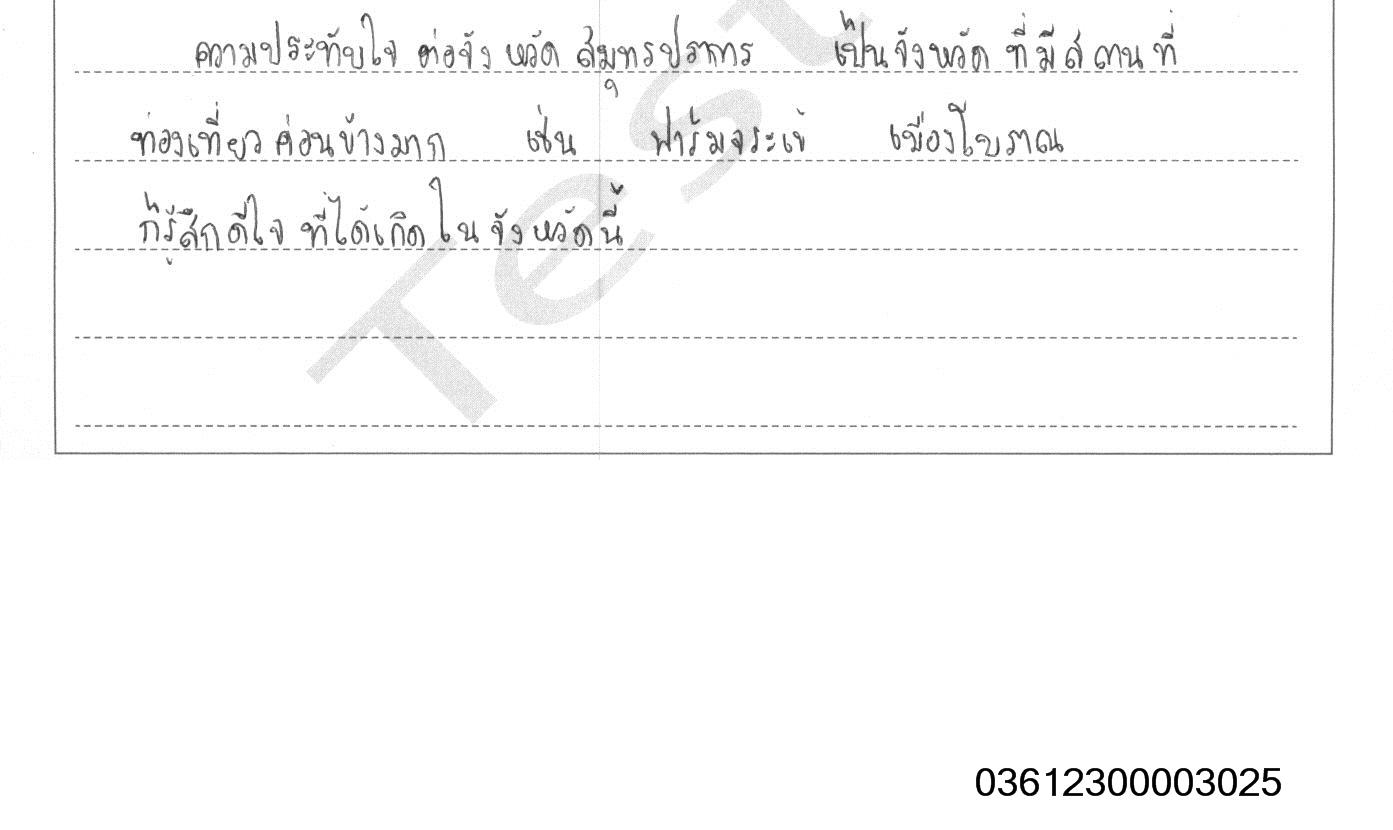 ความประทับใจ ต่อจังหวัด สมุทรปราการ เป็นจังหวัด ที่มีสถานที่
ท่องเที่ยว ค่อนข้างมาก เช่น ฟาร์มจระเข้ เมืองโบราณ
ก็รู้สึกดีใจ ที่ได้เกิดใน จังหวัดนี้
Test
03612300003025